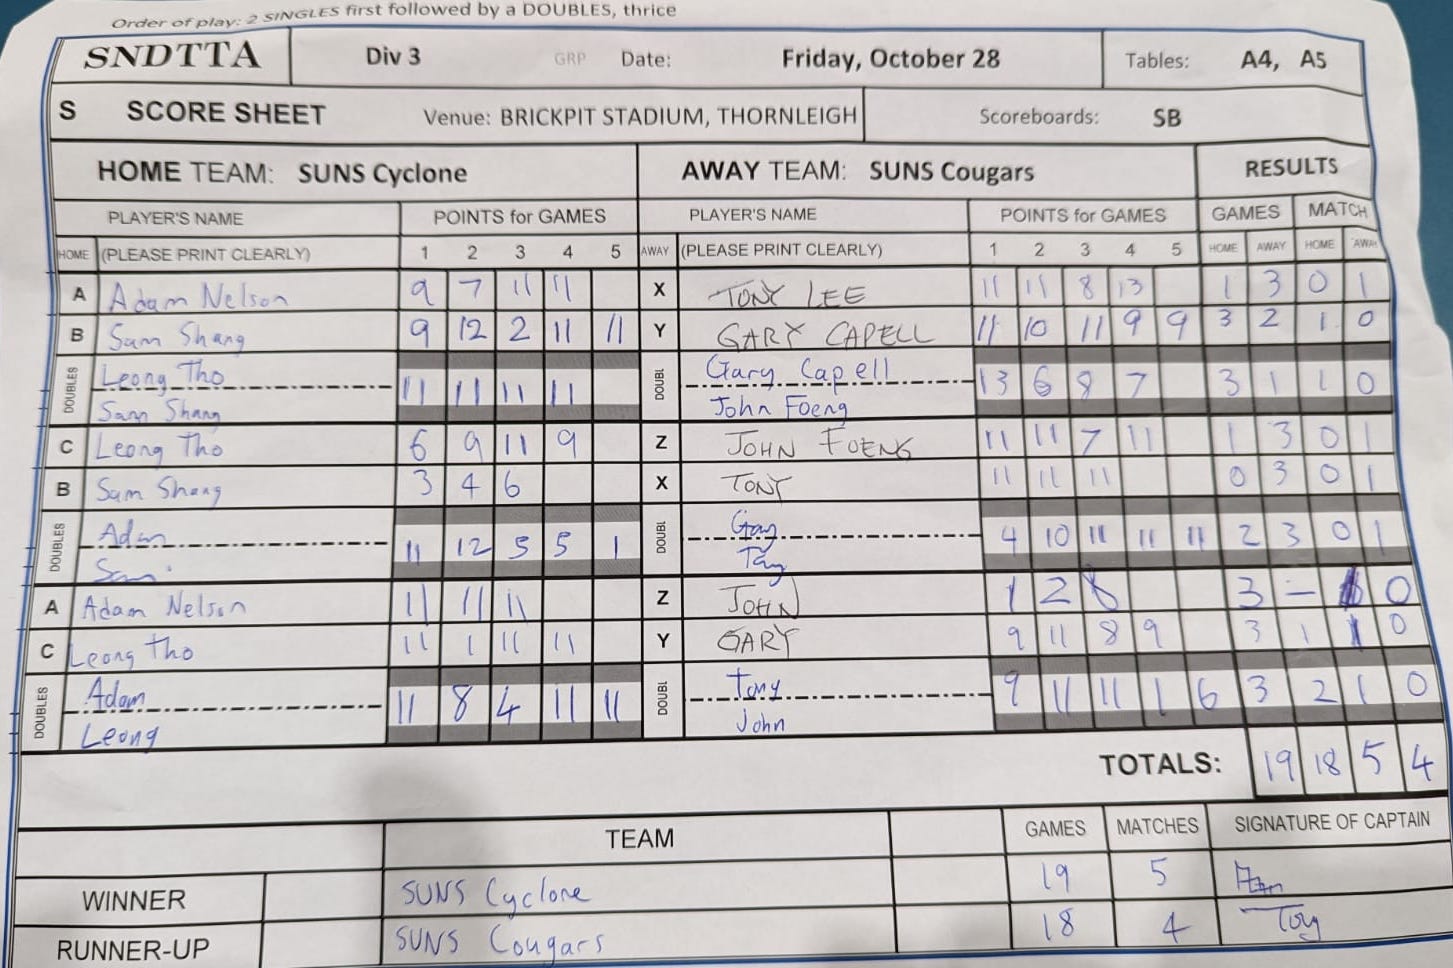 Order of play: 2 SINGLES first followed by a DOUBLES, thrice
SNDTTA Div 3 GRP Date: Friday, October 28 Tables: A4, A5
S SCORE SHEET Venue: BRICKPIT STADIUM, THORNLEIGH Scoreboards: SB
HOME TEAM: SUNS Cyclone AWAY TEAM: SUNS Cougars RESULTS
PLAYER'S NAME POINTS for GAMES PLAYER'S NAME POINTS for GAMES GAMES MATCH
HOME (PLEASE PRINT CLEARLY) 1 2 3 4 5 AWAY (PLEASE PRINT CLEARLY) 1 2 3 4 5 HOME AWAY HOME AWAY
A Adam Nelson 9 7 11 11 X TONY LEE 11 11 8 13 1 3 0 1
B Sam Shang 9 12 2 11 11 Y GARY CAPELL 11 10 11 9 9 3 2 1 0
DOUBLES Leong Tho DOUBL Gary Capell
Sam Shang 11 11 11 11 John Foeng 13 6 8 7 3 1 1 0
C Leong Tho 6 9 11 9 Z JOHN FOENG 11 11 7 11 1 3 0 1
B Sam Shang 3 4 6 X TONY 11 11 11 0 3 0 1
DOUBLES Adam DOUBL Gary
Sam 11 12 5 5 1 Tony 4 10 11 11 11 2 3 0 1
A Adam Nelson 11 11 11 Z JOHN 1 2 8 3 – 0
C Leong Tho 11 1 11 11 Y GARY 9 11 8 9 3 1 1 0
DOUBLES Adam DOUBL Tony
Leong 11 8 4 11 11 John 9 11 11 1 6 3 2 1 0
TOTALS: 19 18 5 4
TEAM GAMES MATCHES SIGNATURE OF CAPTAIN
WINNER SUNS Cyclone 19 5
RUNNER-UP SUNS Cougars 18 4 Tony